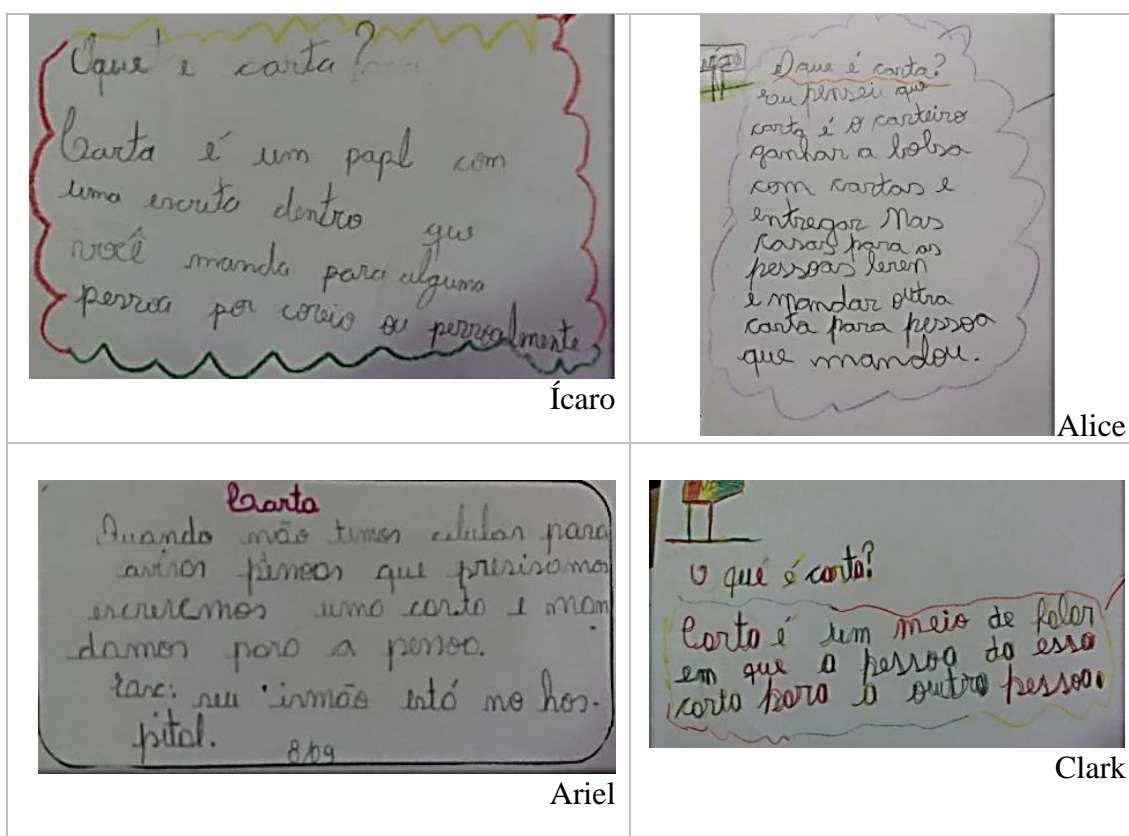 Oque é carta?
Carta é um papl com
uma escrita dentro que
você manda para alguma
pessoa por coreio ou pessoalmente
Ícaro
O que é carta?
eu pensei que
carta é o carteiro
ganhar a bolsa
com cartas e
entregar nas
casas para as
pessoas leren
e mandar outra
carta para pessoa
que mandou.
Alice
Carta
Quando não temos celular para
avisar pessoas que presisamos
escrevemos uma carta e man
damos para a pessoa.
seu irmão está no hos-
pital.
8/09
Ariel
O que é carta?
Carta é um meio de falar
em que a pessoa da essa
carta para a outra pessoa.
Clark